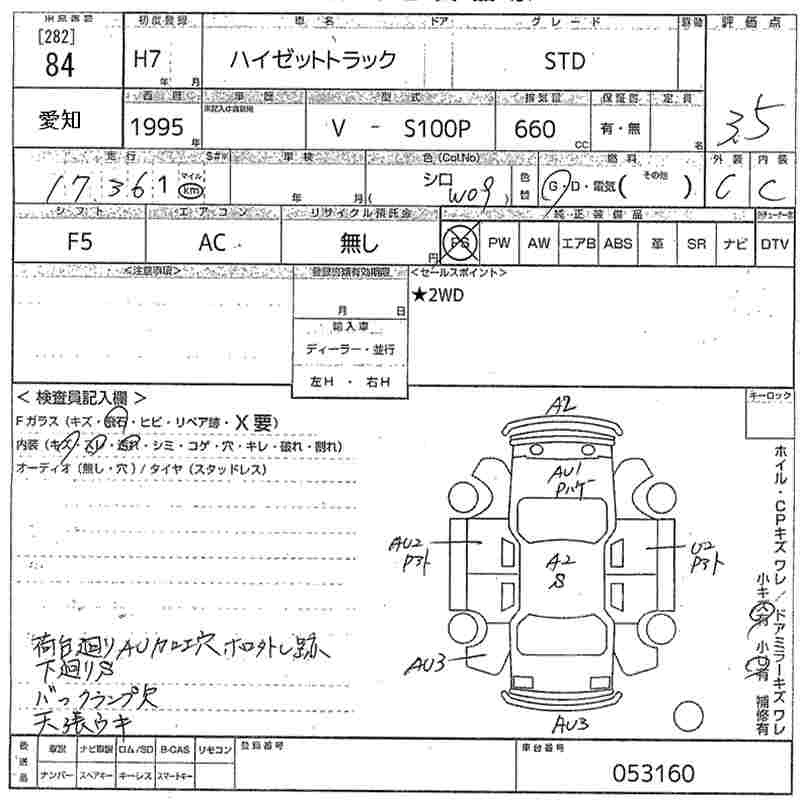 初度登録 車名 ドア グレード 評価点
[282]
84 H7 年 月 ハイゼットトラック STD 3.5
愛知 西暦 車歴 型式 排気量 保証書 定員
1995 年 V - S100P 660 CC 有・無 名
走行 車検 色(Col.No) 燃料 外装 内装
17361 マイル km 年 月 ( シロ W09 ) 色替 G・D・電気( その他 ) C C
シフト エアコン リサイクル預託金 純正装備品
F5 AC 無し 円 PS PW AW エアB ABS 革 SR ナビ DTV
<注意事項> 登録書類有効期限 <セールスポイント>
★2WD
月 日
輸入車
ディーラー・並行
左H ・ 右H
< 検査員記入欄 > キーロック
Fガラス (キズ・飛石・ヒビ・リペア跡・X要)
内装 (キズ・スレ・汚れ・シミ・コゲ・穴・キレ・破れ・割れ)
オーディオ (無し・穴) / タイヤ (スタッドレス)
A2
AU1
Pハケー
AU2
Pヨト
A2
S
U2
Pヨト
AU3
AU3
ホイル・CPキズ ワレ / ドアミラーキズ ワレ
小キズ有 小凹有 補修有
荷台廻りAUカロエ穴 ホロ外し跡
下廻りS
バックランプ欠
天張ウキ
後送品 取説 ナビ取説 ロム/SD B-CAS リモコン 登録番号 車台番号
ナンバー スペアキー キーレス スマートキー 053160